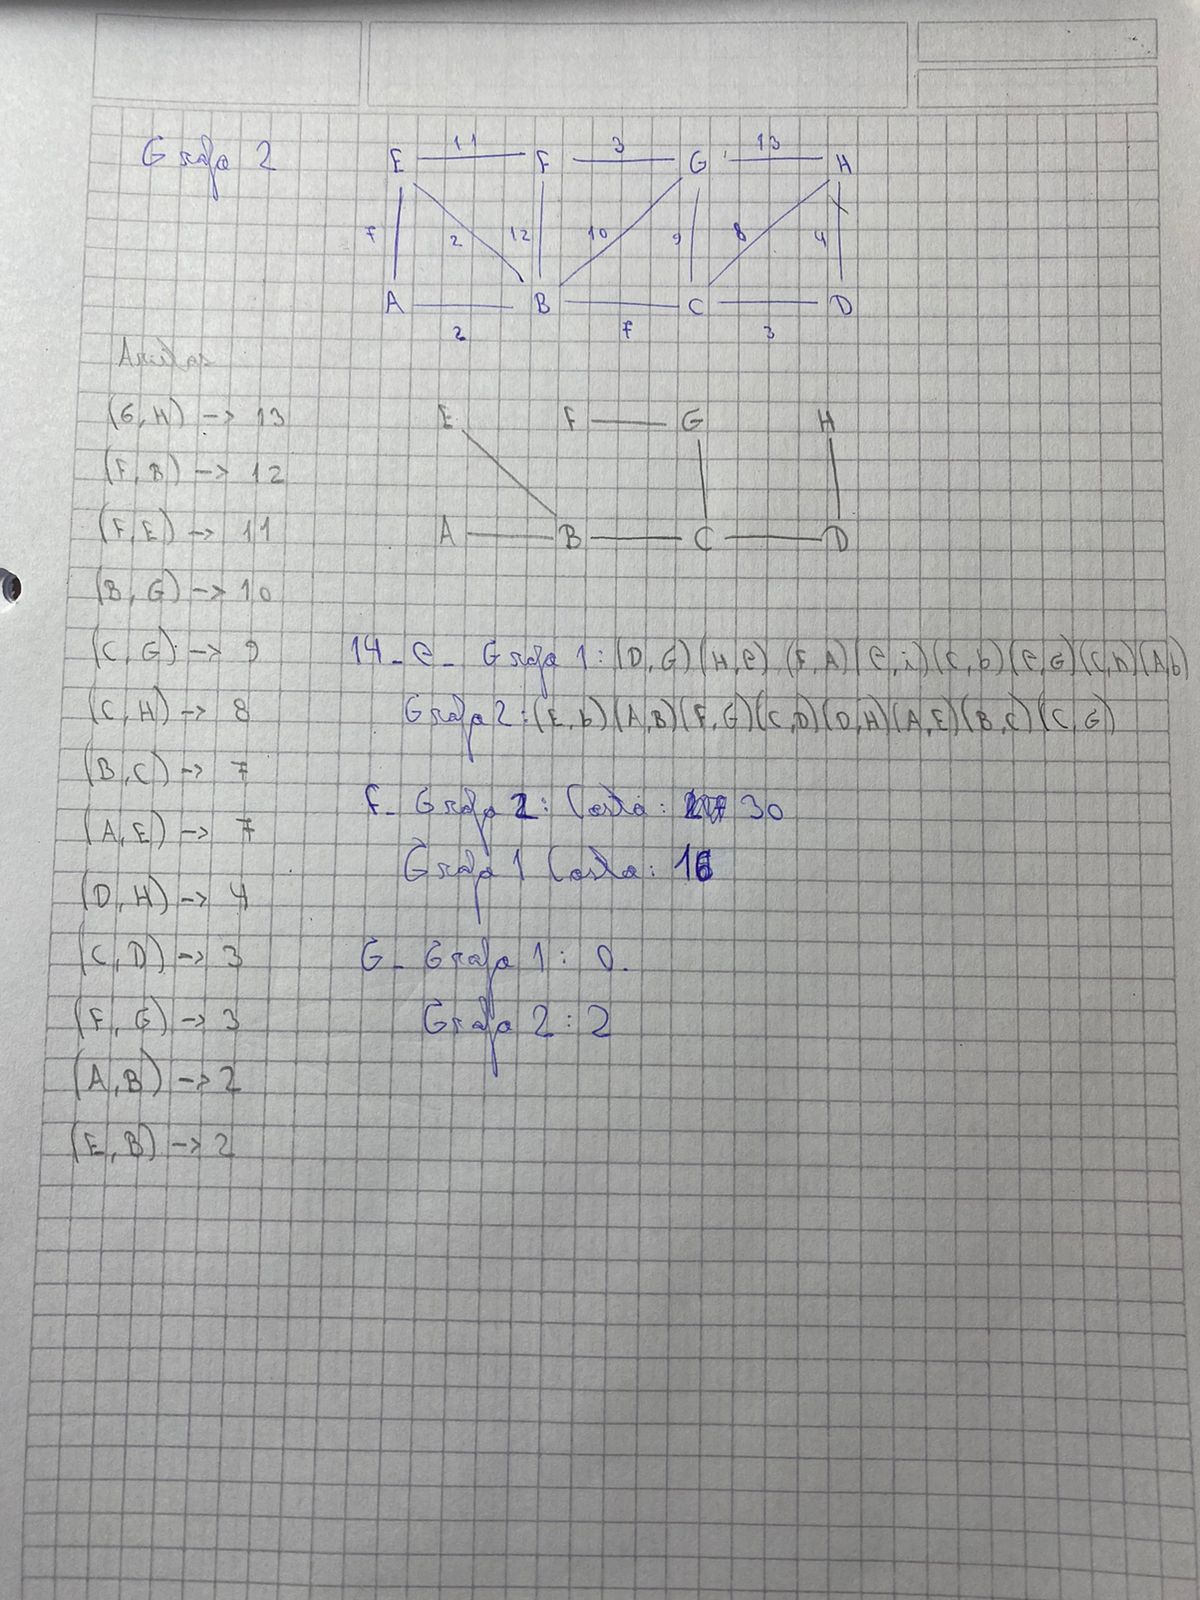 Grafo 2
E 11 F 3 G 13 H
7 2 12 10 9 8 4
A B C D
2 7 3
Aristas
(G,H) -> 13
(F,B) -> 12
(F,E) -> 11
(B,G) -> 10
(C,G) -> 9
(C,H) -> 8
(B,C) -> 7
(A,E) -> 7
(D,H) -> 4
(C,D) -> 3
(F,G) -> 3
(A,B) -> 2
(E,B) -> 2
E F G H
A B C D
14- e- Grafo 1: (D,G) (H,e) (F,A) (e,i) (C,b) (e,G) (C,h) (A,b)
Grafo 2: (E,b) (A,B) (F,G) (C,D) (D,H) (A,E) (B,C) (C,G)
F- Grafo 2: Costo: 30
Grafo 1 Costo: 16
G- Grafo 1: 0.
Grafo 2: 2